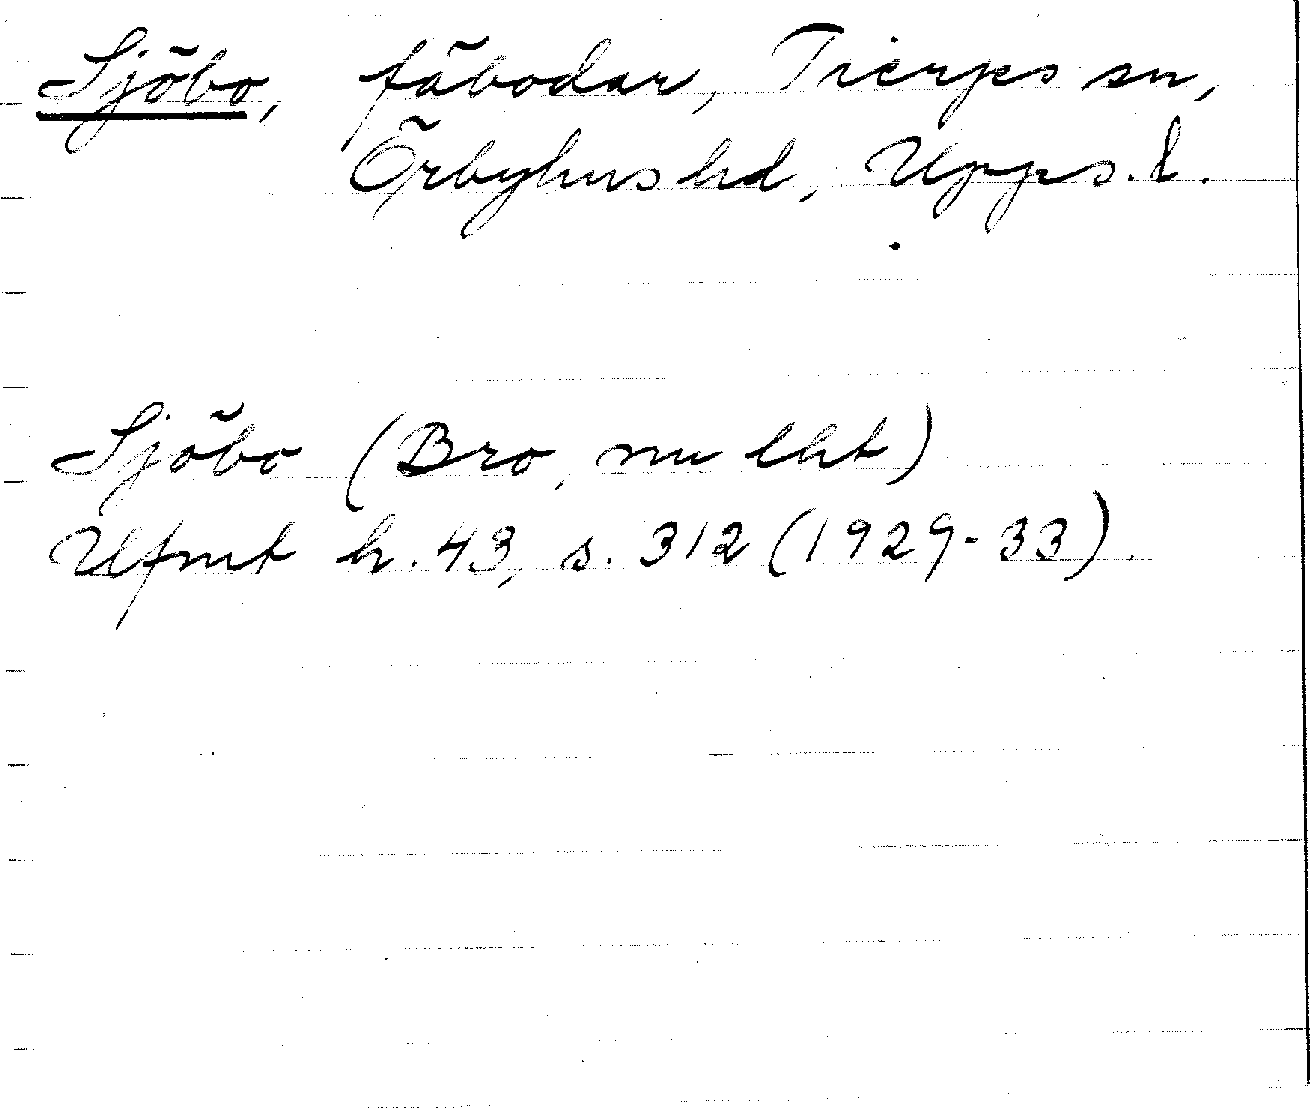 Sjöbo, fäbodar, Tierps sn,
Örbyhus hd, Upps. l.
Sjöbo (Bro, nu lht)
Ufmt h. 43, s. 312 (1929-33).